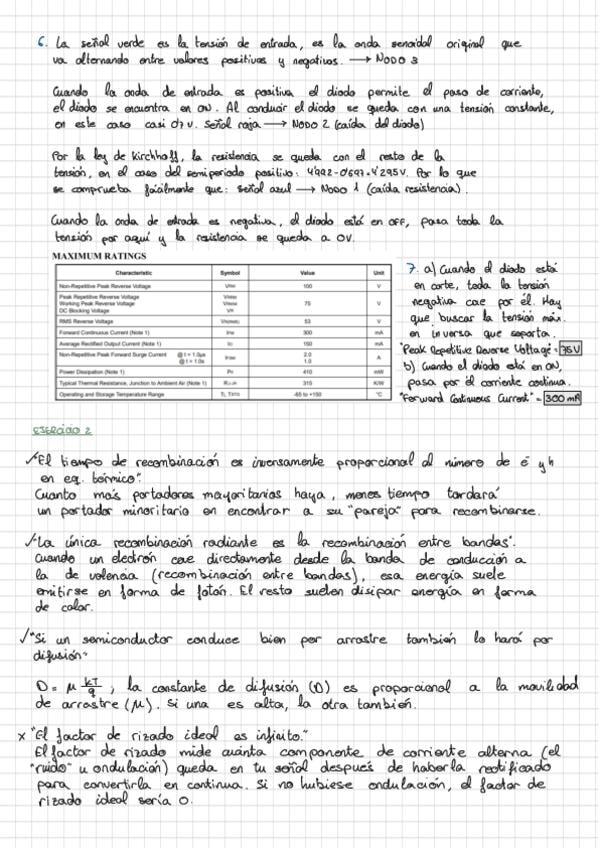 6. La señal verde es la tensión de entrada, es la onda senoidal original que
va alternando entre valores positivos y negativos. → NODO 3
Cuando la onda de entrada es positiva el diodo permite el paso de corriente,
el diodo se encuentra en ON. Al conducir el diodo se queda con una tensión constante,
en este caso casi 0'7 V. Señal roja → NODO 2 (caída del diodo)
Por la ley de Kirchhoff, la resistencia se queda con el resto de la
tensión, en el caso del semiperiodo positivo: 4'992-0'697=4'295V. Por lo que
se comprueba fácilmente que: señal azul → NODO 1 (caída resistencia).
Cuando la onda de entrada es negativa, el diodo está en OFF, pasa toda la
tensión por aquí y la resistencia se queda a 0V.
MAXIMUM RATINGS
Characteristic Symbol Value Unit
Non-Repetitive Peak Reverse Voltage VRM 100 V
Peak Repetitive Reverse Voltage VRRM
Working Peak Reverse Voltage VRWM 75 V
DC Blocking Voltage VR
RMS Reverse Voltage VR(RMS) 53 V
Forward Continuous Current (Note 1) IFM 300 mA
Average Rectified Output Current (Note 1) IO 150 mA
Non-Repetitive Peak Forward Surge Current @ t = 1.0µs IFSM 2.0 A
@ t = 1.0s 1.0
Power Dissipation (Note 1) PD 410 mW
Typical Thermal Resistance, Junction to Ambient Air (Note 1) 315 K/W
Operating and Storage Temperature Range TJ, TSTG -65 to +150 °C
7. a) Cuando el diodo está
en corte, toda la tensión
negativa cae por él. Hay
que buscar la tensión máx.
en inversa que soporta.
"Peak Repetitive Reverse Voltage" = 75V
b) Cuando el diodo está en ON,
pasa por él corriente continua.
"Forward Continuous Current" = 300 mA
EJERCICIO 2
✓"El tiempo de recombinación es inversamente proporcional al número de e⁻ y h
en eq. térmico".
Cuanto más portadores mayoritarios haya, menos tiempo tardará
un portador minoritario en encontrar a su "pareja" para recombinarse.
✓"La única recombinación radiante es la recombinación entre bandas".
Cuando un electrón cae directamente desde la banda de conducción a
la de valencia (recombinación entre bandas), esa energía suele
emitirse en forma de fotón. El resto suelen disipar energía en forma
de calor.
✓"Si un semiconductor conduce bien por arrastre también lo hará por
difusión"
D = μ kT/q ; la constante de difusión (D) es proporcional a la movilidad
de arrastre (μ). Si una es alta, la otra también.
x "El factor de rizado ideal es infinito."
El factor de rizado mide cuánta componente de corriente alterna (el
"ruido" u ondulación) queda en tu señal después de haberla rectificado
para convertirla en continua. Si no hubiese ondulación, el factor de
rizado ideal sería 0.